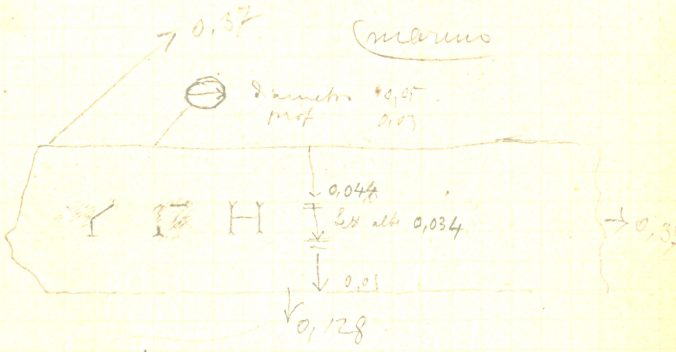 0,37
marmo
diametro 0,05
prof 0,03
0,044
Lett alt. 0,034
Υ Γ Η
0,05
0,128